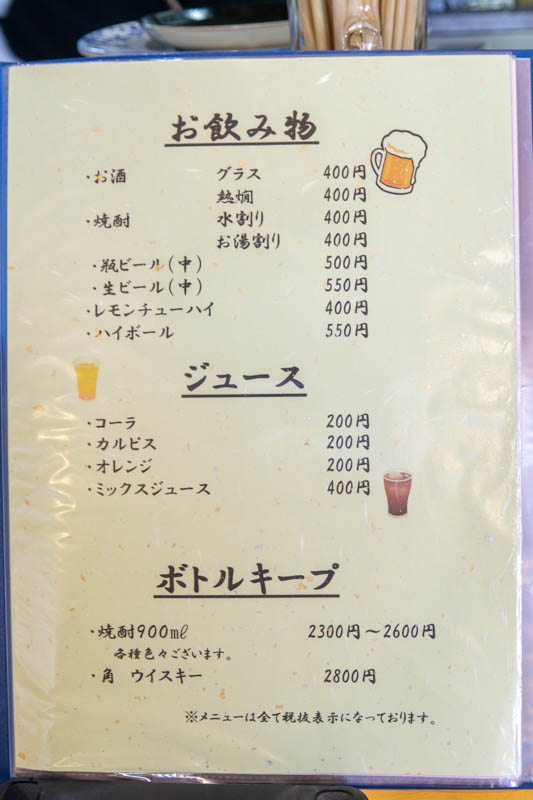 お飲み物
・お酒 グラス 400円
熱燗 400円
・焼酎 水割り 400円
お湯割り 400円
・瓶ビール(中) 500円
・生ビール(中) 550円
・レモンチューハイ 400円
・ハイボール 550円
ジュース
・コーラ 200円
・カルピス 200円
・オレンジ 200円
・ミックスジュース 400円
ボトルキープ
・焼酎900ml 2300円~2600円
各種色々ございます。
・角 ウイスキー 2800円
※メニューは全て税抜表示になっております。